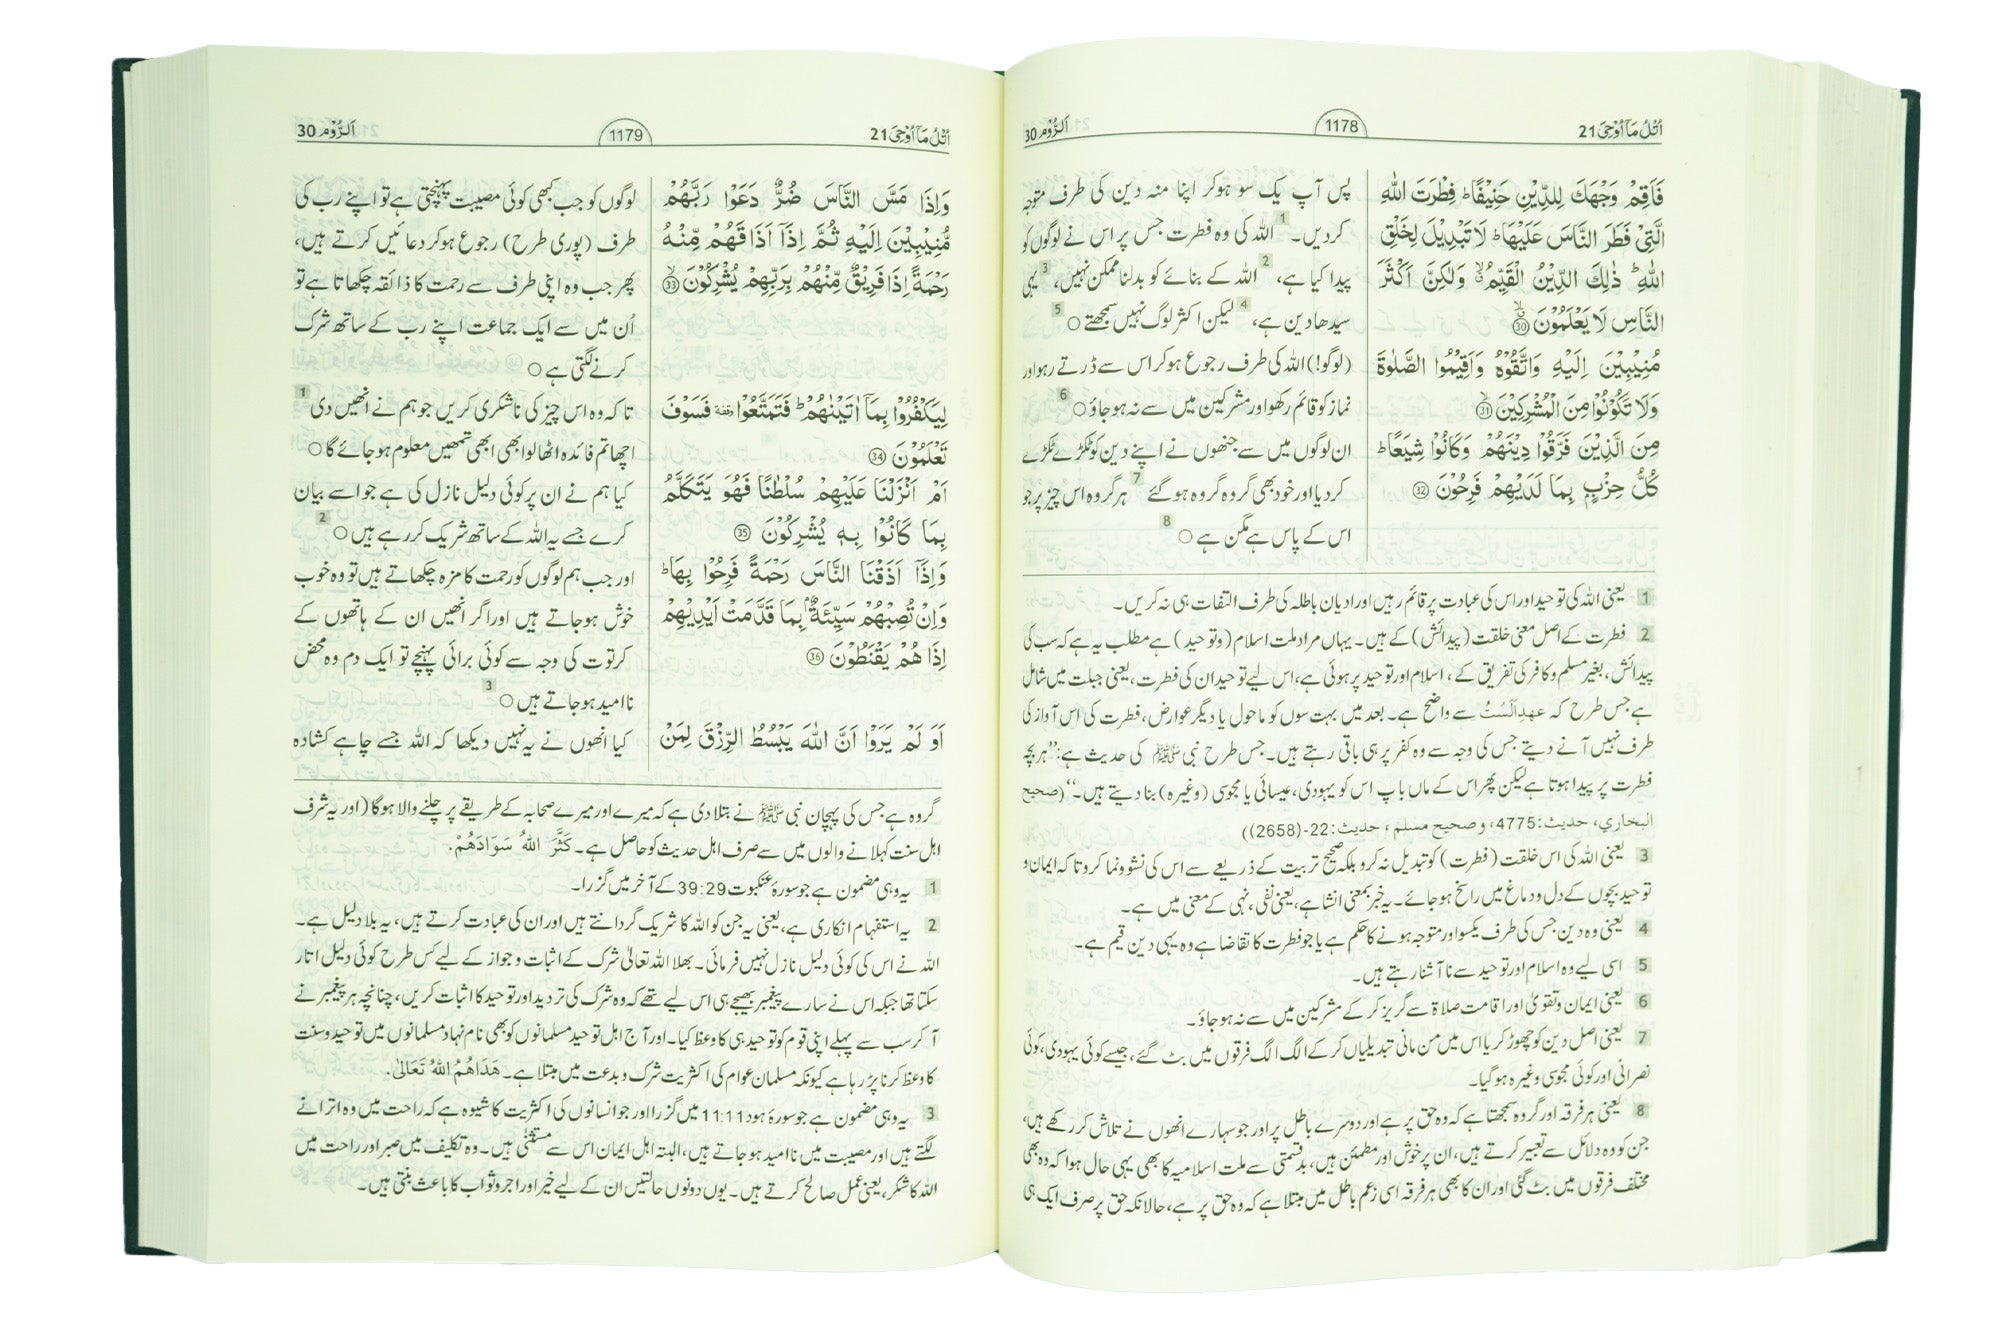 اُتْلُ مَاۤ اُوْحِیَ 21
1178
اَلرُّوْم 30
فَاَقِمْ وَجْهَكَ لِلدِّیْنِ حَنِیْفًا ؕ فِطْرَتَ اللّٰهِ
الَّتِیْ فَطَرَ النَّاسَ عَلَیْهَا ؕ لَا تَبْدِیْلَ لِخَلْقِ
اللّٰهِ ؕ ذٰلِكَ الدِّیْنُ الْقَیِّمُ ۙ وَلٰكِنَّ اَكْثَرَ
النَّاسِ لَا یَعْلَمُوْنَ ۙ 30
مُنِیْبِیْنَ اِلَیْهِ وَاتَّقُوْهُ وَاَقِیْمُوا الصَّلٰوةَ
وَلَا تَكُوْنُوْا مِنَ الْمُشْرِكِیْنَ ۙ 31
مِنَ الَّذِیْنَ فَرَّقُوْا دِیْنَهُمْ وَكَانُوْا شِیَعًا ؕ
كُلُّ حِزْبٍۭ بِمَا لَدَیْهِمْ فَرِحُوْنَ 32
پس آپ یک سو ہوکر اپنا منہ دین کی طرف متوجہ
کردیں۔ 1 اللہ کی وہ فطرت جس پر اس نے لوگوں کو
پیدا کیا ہے، 2 اللہ کے بنائے کو بدلنا ممکن نہیں، 3 یہی
سیدھا دین ہے، 4 لیکن اکثر لوگ نہیں سمجھتے ○ 5
(لوگو!) اللہ کی طرف رجوع ہوکر اس سے ڈرتے رہو اور
نماز کو قائم رکھو اور مشرکین میں سے نہ ہو جاؤ ○ 6
ان لوگوں میں سے جنھوں نے اپنے دین کو ٹکڑے ٹکڑے
کردیا اور خود بھی گروہ گروہ ہو گئے 7 ہر گروہ اس چیز پر جو
اس کے پاس ہے مگن ہے ○ 8
1 یعنی اللہ کی توحید اور اس کی عبادت پر قائم رہیں اور ادیان باطلہ کی طرف التفات ہی نہ کریں۔
2 فطرت کے اصل معنی خلقت (پیدائش) کے ہیں۔ یہاں مراد ملت اسلام (و توحید) ہے مطلب یہ ہے کہ سب کی
پیدائش، بغیر مسلم و کافر کی تفریق کے، اسلام اور توحید پر ہوئی ہے، اس لیے توحید ان کی فطرت، یعنی جبلت میں شامل
ہے جس طرح کہ عہدِاَلَسْتُ سے واضح ہے۔ بعد میں بہت سوں کو ماحول یا دیگر عوارض، فطرت کی اس آواز کی
طرف نہیں آنے دیتے جس کی وجہ سے وہ کفر پر ہی باقی رہتے ہیں۔ جس طرح نبی ﷺ کی حدیث ہے: ”ہر بچہ
فطرت پر پیدا ہوتا ہے لیکن پھر اس کے ماں باپ اس کو یہودی، عیسائی یا مجوسی (وغیرہ) بنا دیتے ہیں۔“ (صحیح
البخاري، حدیث: 4775، و صحیح مسلم، حدیث: 22-(2658))
3 یعنی اللہ کی اس خلقت (فطرت) کو تبدیل نہ کرو بلکہ صحیح تربیت کے ذریعے سے اس کی نشوونما کرو تاکہ ایمان و
توحید بچوں کے دل و دماغ میں راسخ ہو جائے۔ یہ خبر بمعنی انشا ہے، یعنی نفی، نہی کے معنی میں ہے۔
4 یعنی وہ دین جس کی طرف یکسو اور متوجہ ہونے کا حکم ہے یا جو فطرت کا تقاضا ہے وہ یہی دین قیم ہے۔
5 اسی لیے وہ اسلام اور توحید سے نا آشنا رہتے ہیں۔
6 یعنی ایمان و تقویٰ اور اقامت صلاۃ سے گریز کر کے مشرکین میں سے نہ ہو جاؤ۔
7 یعنی اصل دین کو چھوڑ کر یا اس میں من مانی تبدیلیاں کر کے الگ الگ فرقوں میں بٹ گئے، جیسے کوئی یہودی، کوئی
نصرانی اور کوئی مجوسی وغیرہ ہو گیا۔
8 یعنی ہر فرقہ اور گروہ سمجھتا ہے کہ وہ حق پر ہے اور دوسرے باطل پر اور جو سہارے انھوں نے تلاش کر رکھے ہیں،
جن کو وہ دلائل سے تعبیر کرتے ہیں، ان پر خوش اور مطمئن ہیں، بدقسمتی سے ملت اسلامیہ کا بھی یہی حال ہوا کہ وہ بھی
مختلف فرقوں میں بٹ گئی اور ان کا بھی ہر فرقہ اسی زعم باطل میں مبتلا ہے کہ وہ حق پر ہے، حالانکہ حق پر صرف ایک ہی
اُتْلُ مَاۤ اُوْحِیَ 21
1179
اَلرُّوْم 30
وَاِذَا مَسَّ النَّاسَ ضُرٌّ دَعَوْا رَبَّهُمْ
مُّنِیْبِیْنَ اِلَیْهِ ثُمَّ اِذَاۤ اَذَاقَهُمْ مِّنْهُ
رَحْمَةً اِذَا فَرِیْقٌ مِّنْهُمْ بِرَبِّهِمْ یُشْرِكُوْنَ ۙ 33
لِیَكْفُرُوْا بِمَاۤ اٰتَیْنٰهُمْ ؕ فَتَمَتَّعُوْا وقفة فَسَوْفَ
تَعْلَمُوْنَ 34
اَمْ اَنْزَلْنَا عَلَیْهِمْ سُلْطٰنًا فَهُوَ یَتَكَلَّمُ
بِمَا كَانُوْا بِهٖ یُشْرِكُوْنَ 35
وَاِذَاۤ اَذَقْنَا النَّاسَ رَحْمَةً فَرِحُوْا بِهَا ؕ
وَاِنْ تُصِبْهُمْ سَیِّئَةٌۢ بِمَا قَدَّمَتْ اَیْدِیْهِمْ
اِذَا هُمْ یَقْنَطُوْنَ 36
اَوَ لَمْ یَرَوْا اَنَّ اللّٰهَ یَبْسُطُ الرِّزْقَ لِمَنْ
لوگوں کو جب کبھی کوئی مصیبت پہنچتی ہے تو اپنے رب کی
طرف (پوری طرح) رجوع ہوکر دعائیں کرتے ہیں،
پھر جب وہ اپنی طرف سے رحمت کا ذائقہ چکھاتا ہے تو
اُن میں سے ایک جماعت اپنے رب کے ساتھ شرک
کرنے لگتی ہے ○
تاکہ وہ اس چیز کی ناشکری کریں جو ہم نے انھیں دی 1
اچھا تم فائدہ اٹھا لو ابھی ابھی تمھیں معلوم ہو جائے گا ○
کیا ہم نے ان پر کوئی دلیل نازل کی ہے جو اسے بیان
کرے جسے یہ اللہ کے ساتھ شریک کر رہے ہیں ○ 2
اور جب ہم لوگوں کو رحمت کا مزہ چکھاتے ہیں تو وہ خوب
خوش ہو جاتے ہیں اور اگر انھیں ان کے ہاتھوں کے
کرتوت کی وجہ سے کوئی برائی پہنچے تو ایک دم وہ محض
ناامید ہو جاتے ہیں ○ 3
کیا انھوں نے یہ نہیں دیکھا کہ اللہ جسے چاہے کشادہ
گروہ ہے جس کی پہچان نبی ﷺ نے بتلا دی ہے کہ میرے اور میرے صحابہ کے طریقے پر چلنے والا ہوگا (اور یہ شرف
اہل سنت کہلانے والوں میں سے صرف اہل حدیث کو حاصل ہے۔ كَثَّرَ اللّٰهُ سَوَادَهُمْ.
1 یہ وہی مضمون ہے جو سورۂ عنکبوت 39:29 کے آخر میں گزرا۔
2 یہ استفہام انکاری ہے، یعنی یہ جن کو اللہ کا شریک گردانتے ہیں اور ان کی عبادت کرتے ہیں، یہ بلا دلیل ہے۔
اللہ نے اس کی کوئی دلیل نازل نہیں فرمائی۔ بھلا اللہ تعالیٰ شرک کے اثبات و جواز کے لیے کس طرح کوئی دلیل اتار
سکتا تھا جبکہ اس نے سارے پیغمبر بھیجے ہی اس لیے تھے کہ وہ شرک کی تردید اور توحید کا اثبات کریں، چنانچہ ہر پیغمبر نے
آ کر سب سے پہلے اپنی قوم کو توحید ہی کا وعظ کیا۔ اور آج اہل توحید مسلمانوں کو بھی نام نہاد مسلمانوں میں توحید و سنت
کا وعظ کرنا پڑ رہا ہے کیونکہ مسلمان عوام کی اکثریت شرک و بدعت میں مبتلا ہے۔ هَدَاهُمُ اللّٰهُ تَعَالٰى.
3 یہ وہی مضمون ہے جو سورۂ ہود 11:11 میں گزرا اور جو انسانوں کی اکثریت کا شیوہ ہے کہ راحت میں وہ اترانے
لگتے ہیں اور مصیبت میں ناامید ہو جاتے ہیں، البتہ اہل ایمان اس سے مستثنیٰ ہیں۔ وہ تکلیف میں صبر اور راحت میں
اللہ کا شکر، یعنی عمل صالح کرتے ہیں۔ یوں دونوں حالتیں ان کے لیے خیر اور اجر و ثواب کا باعث بنتی ہیں۔